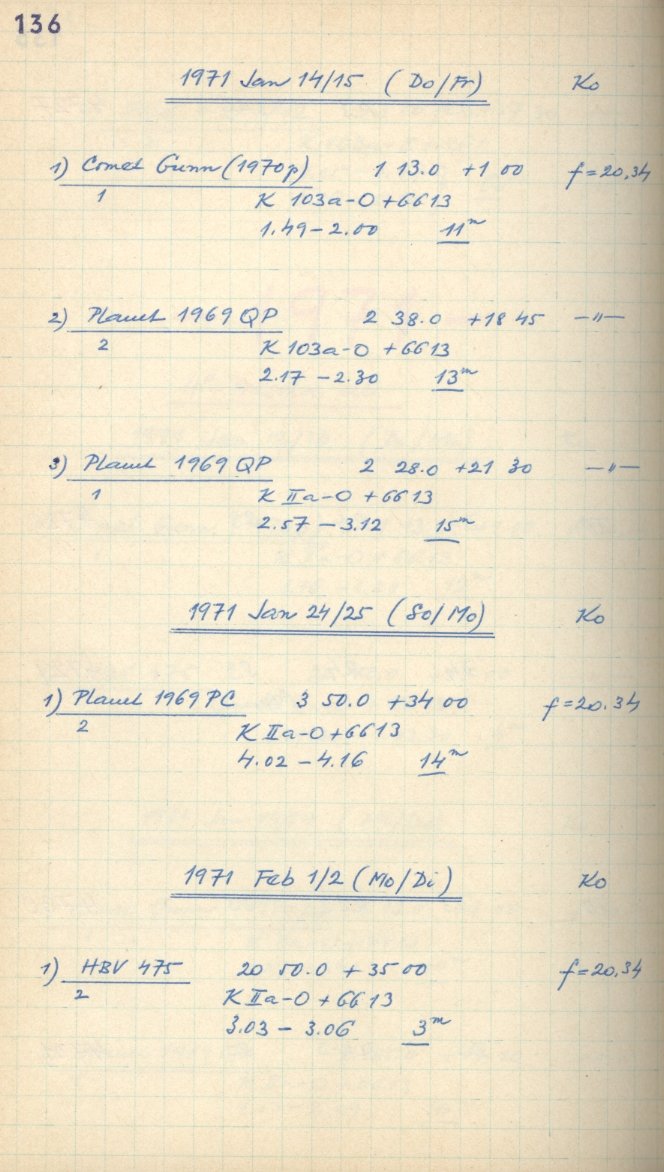 136
1971 Jan 14/15 (Do/Fr) Ko
1) Comet Gunn (1970p) 1 13.0 +1 00 f=20,34
1 K 103a-O +6613
1.49-2.00 11m
2) Planet 1969 QP 2 38.0 +18 45 -"-
2 K 103a-O +6613
2.17-2.30 13m
3) Planet 1969 QP 2 28.0 +21 30 -"-
1 K IIa-O +6613
2.57-3.12 15m
1971 Jan 24/25 (So/Mo) Ko
1) Planet 1969 PC 3 50.0 +34 00 f=20.34
2 K IIa-O+6613
4.02-4.16 14m
1971 Feb 1/2 (Mo/Di) Ko
1) HBV 475 20 50.0 +35 00 f=20,34
2 K IIa-O +6613
3.03-3.06 3m